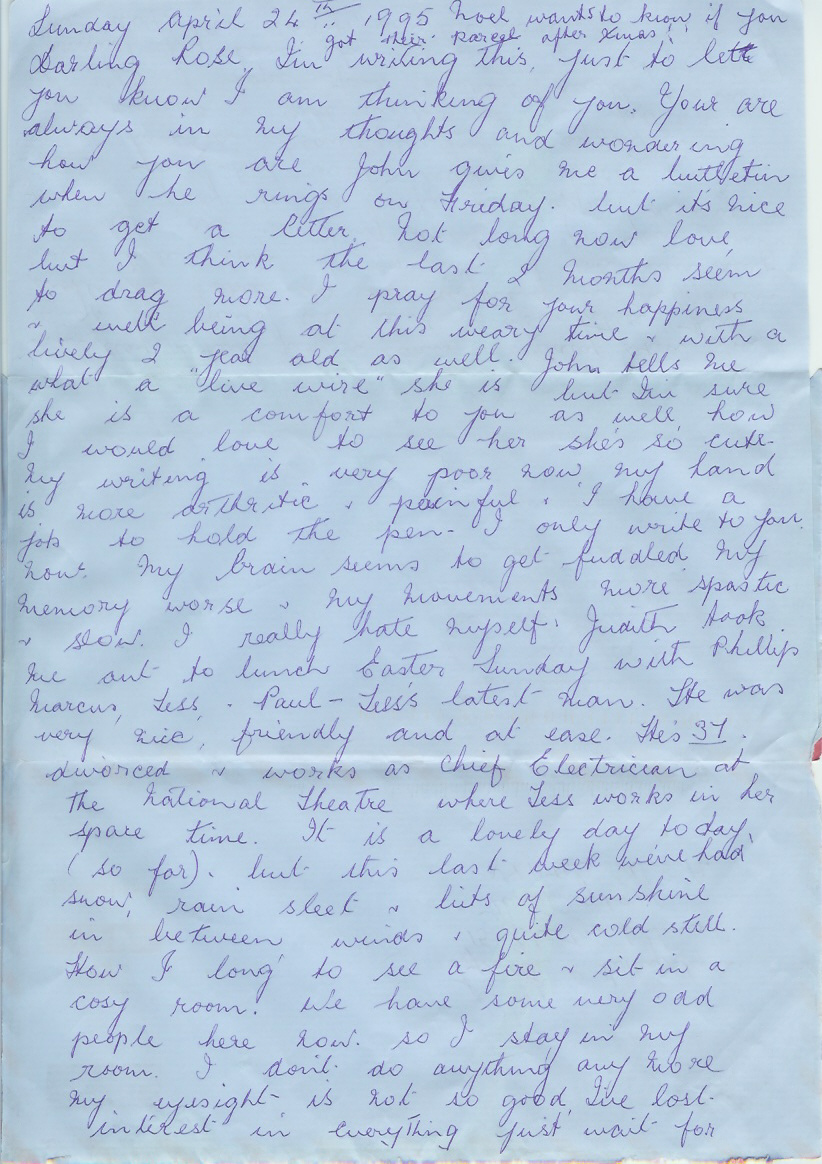 Sunday April 24th 1995 Noel wants to know if you
got their Parcel after Xmas!
Darling Rose, I'm writing this, just to lett
you know I am thinking of you. Your are
always in my thoughts and wondering
how you are John gives me a bulletin
when he rings on Friday. but it's nice
to get a letter. Not long now love,
but I think the last 2 months seem
to drag more. I pray for your happiness
& well being at this weary time & with a
lively 2 year old as well. John tells me
what a "live wire" she is but I'm sure
she is a comfort to you as well, how
I would love to see her she's so cute.
My writing is very poor now, my hand
is more arthritic & painful & I have a
job to hold the pen - I only write to you
now. My brain seems to get fuddled, my
memory worse & my movements more spastic
& slow. I really hate myself. Judith took
me out to lunch Easter Sunday with Phillip
Marcus, Tess, & Paul - Tess's latest man. He was
very nice, friendly and at ease. He's 37.
divorced & works as Chief Electrician at
the National Theatre where Tess works in her
spare time. It is a lovely day today,
(so far). but this last week we've had
snow, rain sleet & bits of sunshine
in between winds & quite cold still.
How I long to see a fire & sit in a
cosy room. We have some very odd
people here now. so I stay in my
room. I don't do anything any more
my eyesight is not so good, I've lost
interest in everything just wait for